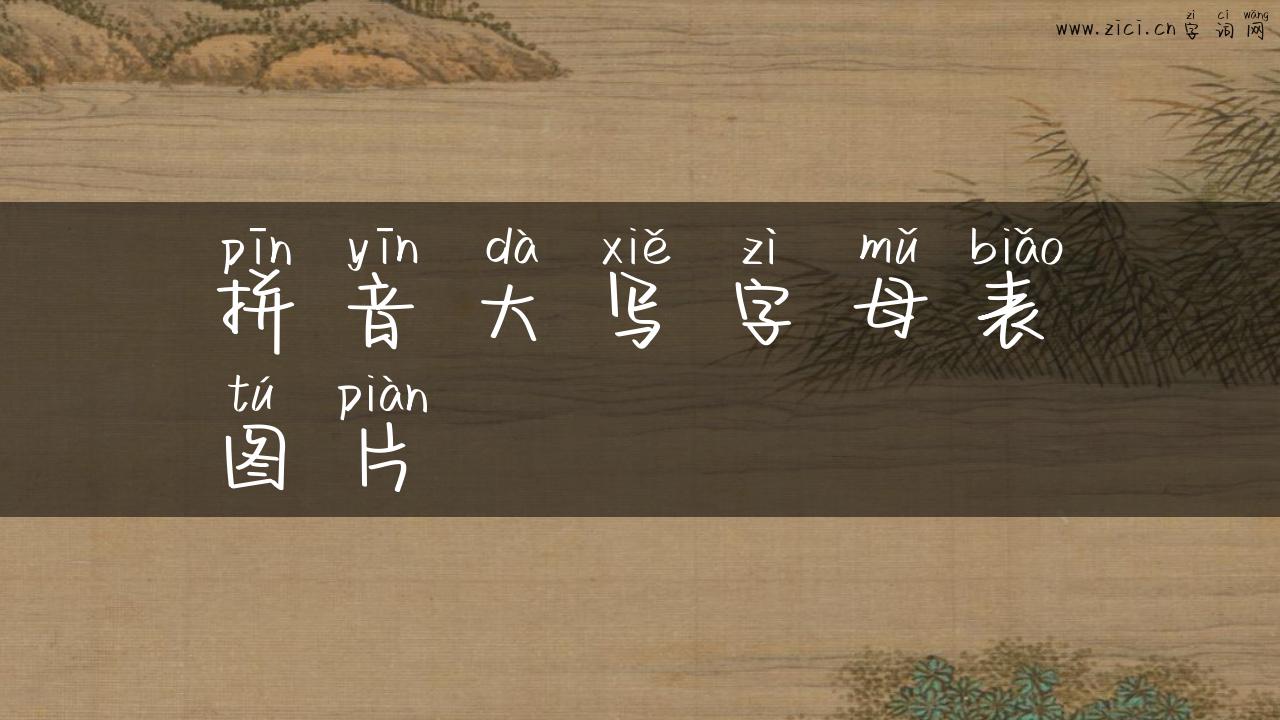 zì cí wǎng
www.zici.cn 字 词 网
pīn yīn dà xiě zì mǔ biǎo
拼 音 大 写 字 母 表
tú piàn
图 片